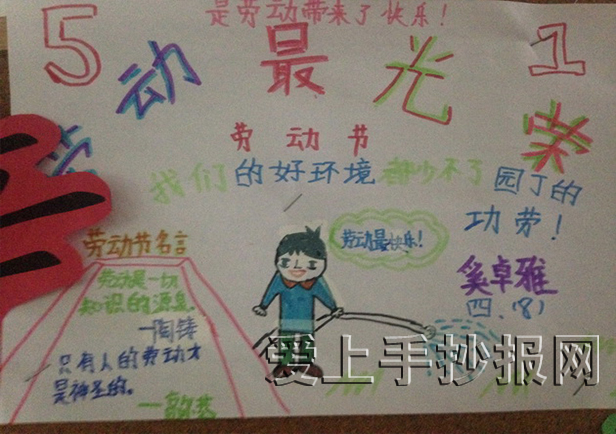 是劳动带来了快乐！
5 1
劳动最光荣
劳动节
我们的好环境都少不了园丁的
功劳！
劳动最快乐！
奚卓雅
四、(8)
劳动节名言
劳动是一切
知识的源泉。
—陶铸
只有人的劳动才
是神圣的。
爱上手抄报网